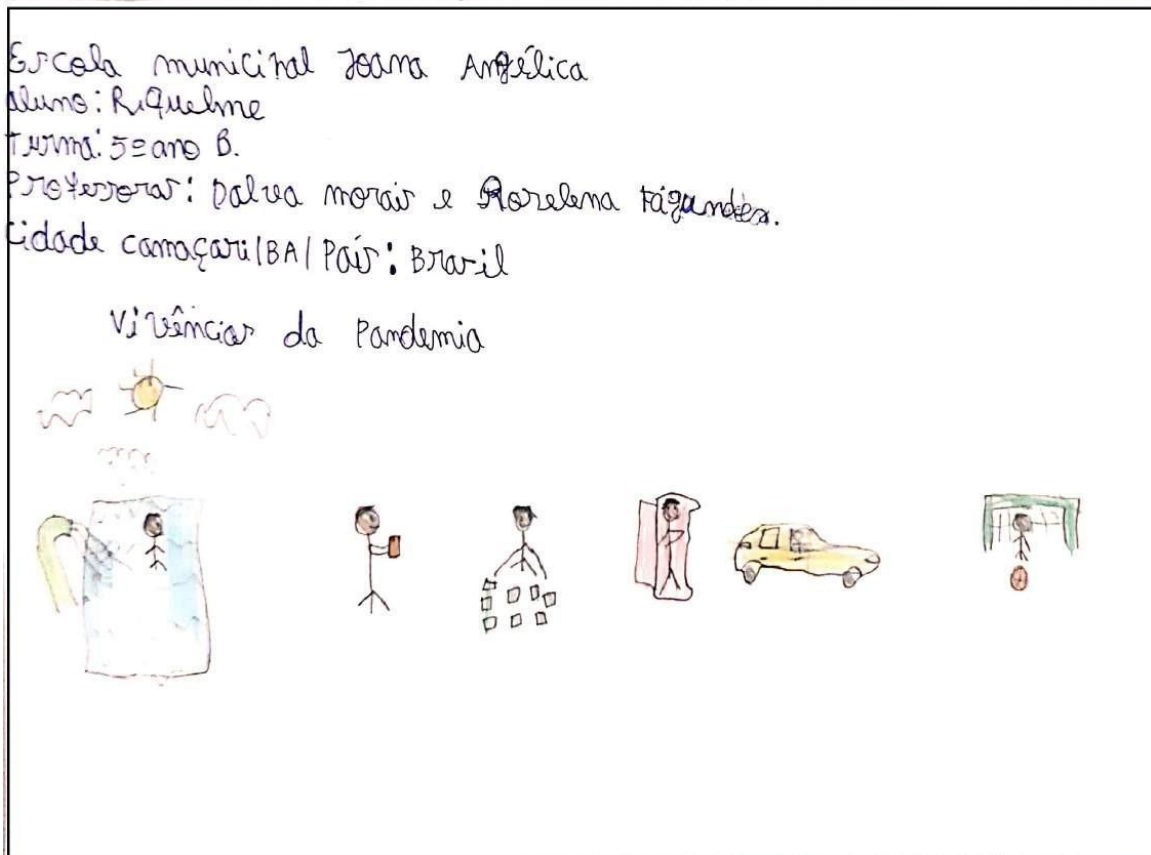 Escola municipal Joana Angélica
aluno: Riquelme
Turma: 5º ano B.
Professoras: Dalva morais e Roselena Fagundes.
Cidade camaçari/BA/ País: Brasil
Vivências da Pandemia